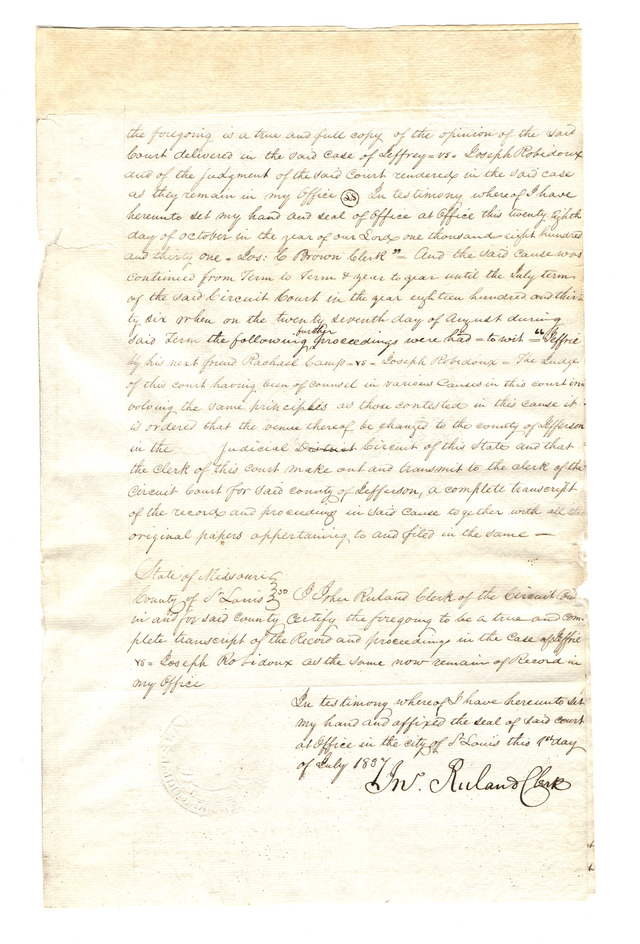 the foregoing is a true and full copy of the opinion of the said
Court delivered in the said case of Jeffrey = vs = Joseph Robidoux
and of the judgment of the said Court rendered in the said case
as they remain in my office SS In testimony whereof I have
hereunto set my hand and seal of office at office this twenty eighth
day of october in the year of our Lord one thousand eight hundred
and thirty one - Jos: C Brown Clerk" = And the said cause was
continued from Term to Term & year to year until the July term
of the said Circuit Court in the year eighteen hundred and thir-
ty six when on the twenty seventh day of August during
further
said Term the following proceedings were had = to wit = "Jeffrie
by his next friend Rachael Camp = vs = Joseph Robidoux = The Judge
of this court having been of counsel in various causes in this court in-
volving the same principles as those contested in this cause it
is ordered that the venue thereof be changed to the county of Jefferson
in the Judicial District Circuit of this State and that
the clerk of this court make out and transmit to the clerk of the
Circuit Court for said county of Jefferson, a complete transcript
of the record and proceeding in said Cause together with all the
original papers appertaining to and filed in the same —
State of Missouri
County of St Louis I John Ruland Clerk of the Circuit
in and for said county certify the foregoing to be a true and com-
plete transcript of the Record and proceedings in the case of Jeffrie
vs = Joseph Robidoux as the same now remain of Record in
my office
In testimony whereof I have hereunto set
my hand and affixed the seal of said court
at office in the city of St Louis this 1st day
of July 1837
Jno. Ruland Clerk